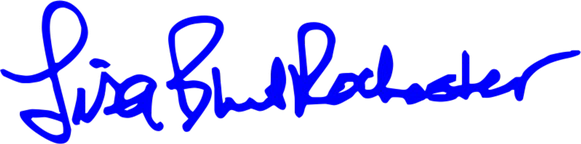 Lisa Blunt Rochester